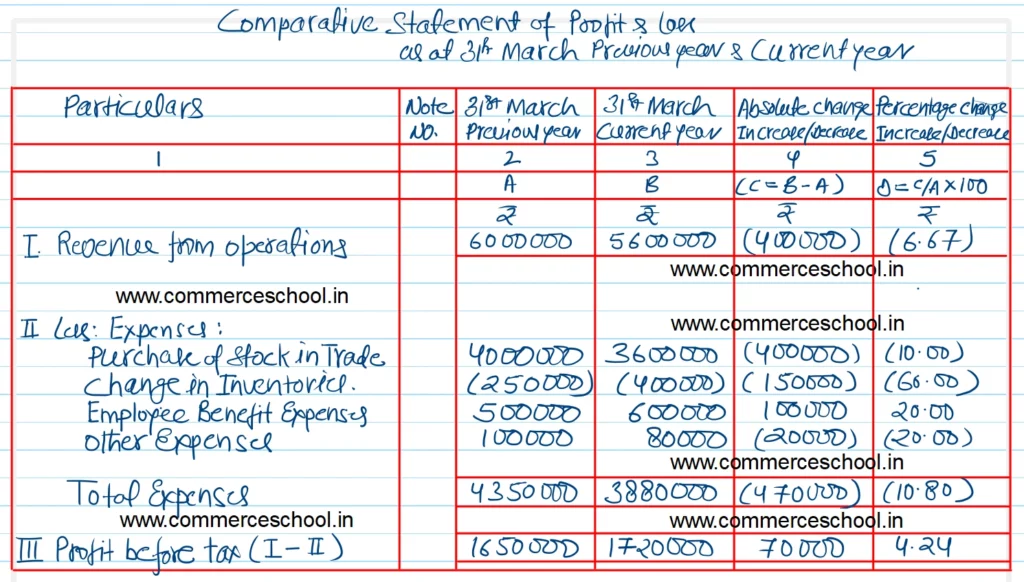 Comparative Statement of Profit & loss
as at 31st March Previous year & Current year
Particulars Note No. 31st March Previous year 31st March Current year Absolute change Increase/Decrease Percentage change Increase/Decrease
1 2 3 4 5
A B (C = B - A) D = C/A × 100
₹ ₹ ₹ ₹
I. Revenue from operations 6000000 5600000 (400000) (6.67)
www.commerceschool.in
www.commerceschool.in
II Less: Expenses: www.commerceschool.in
Purchase of Stock in Trade 4000000 3600000 (400000) (10.00)
Change in Inventories. (250000) (400000) (150000) (60.00)
Employee Benefit Expenses 500000 600000 100000 20.00
Other Expenses 100000 80000 (20000) (20.00)
www.commerceschool.in
Total Expenses 4350000 3880000 (470000) (10.80)
www.commerceschool.in www.commerceschool.in
III Profit before tax (I - II) 1650000 1720000 70000 4.24